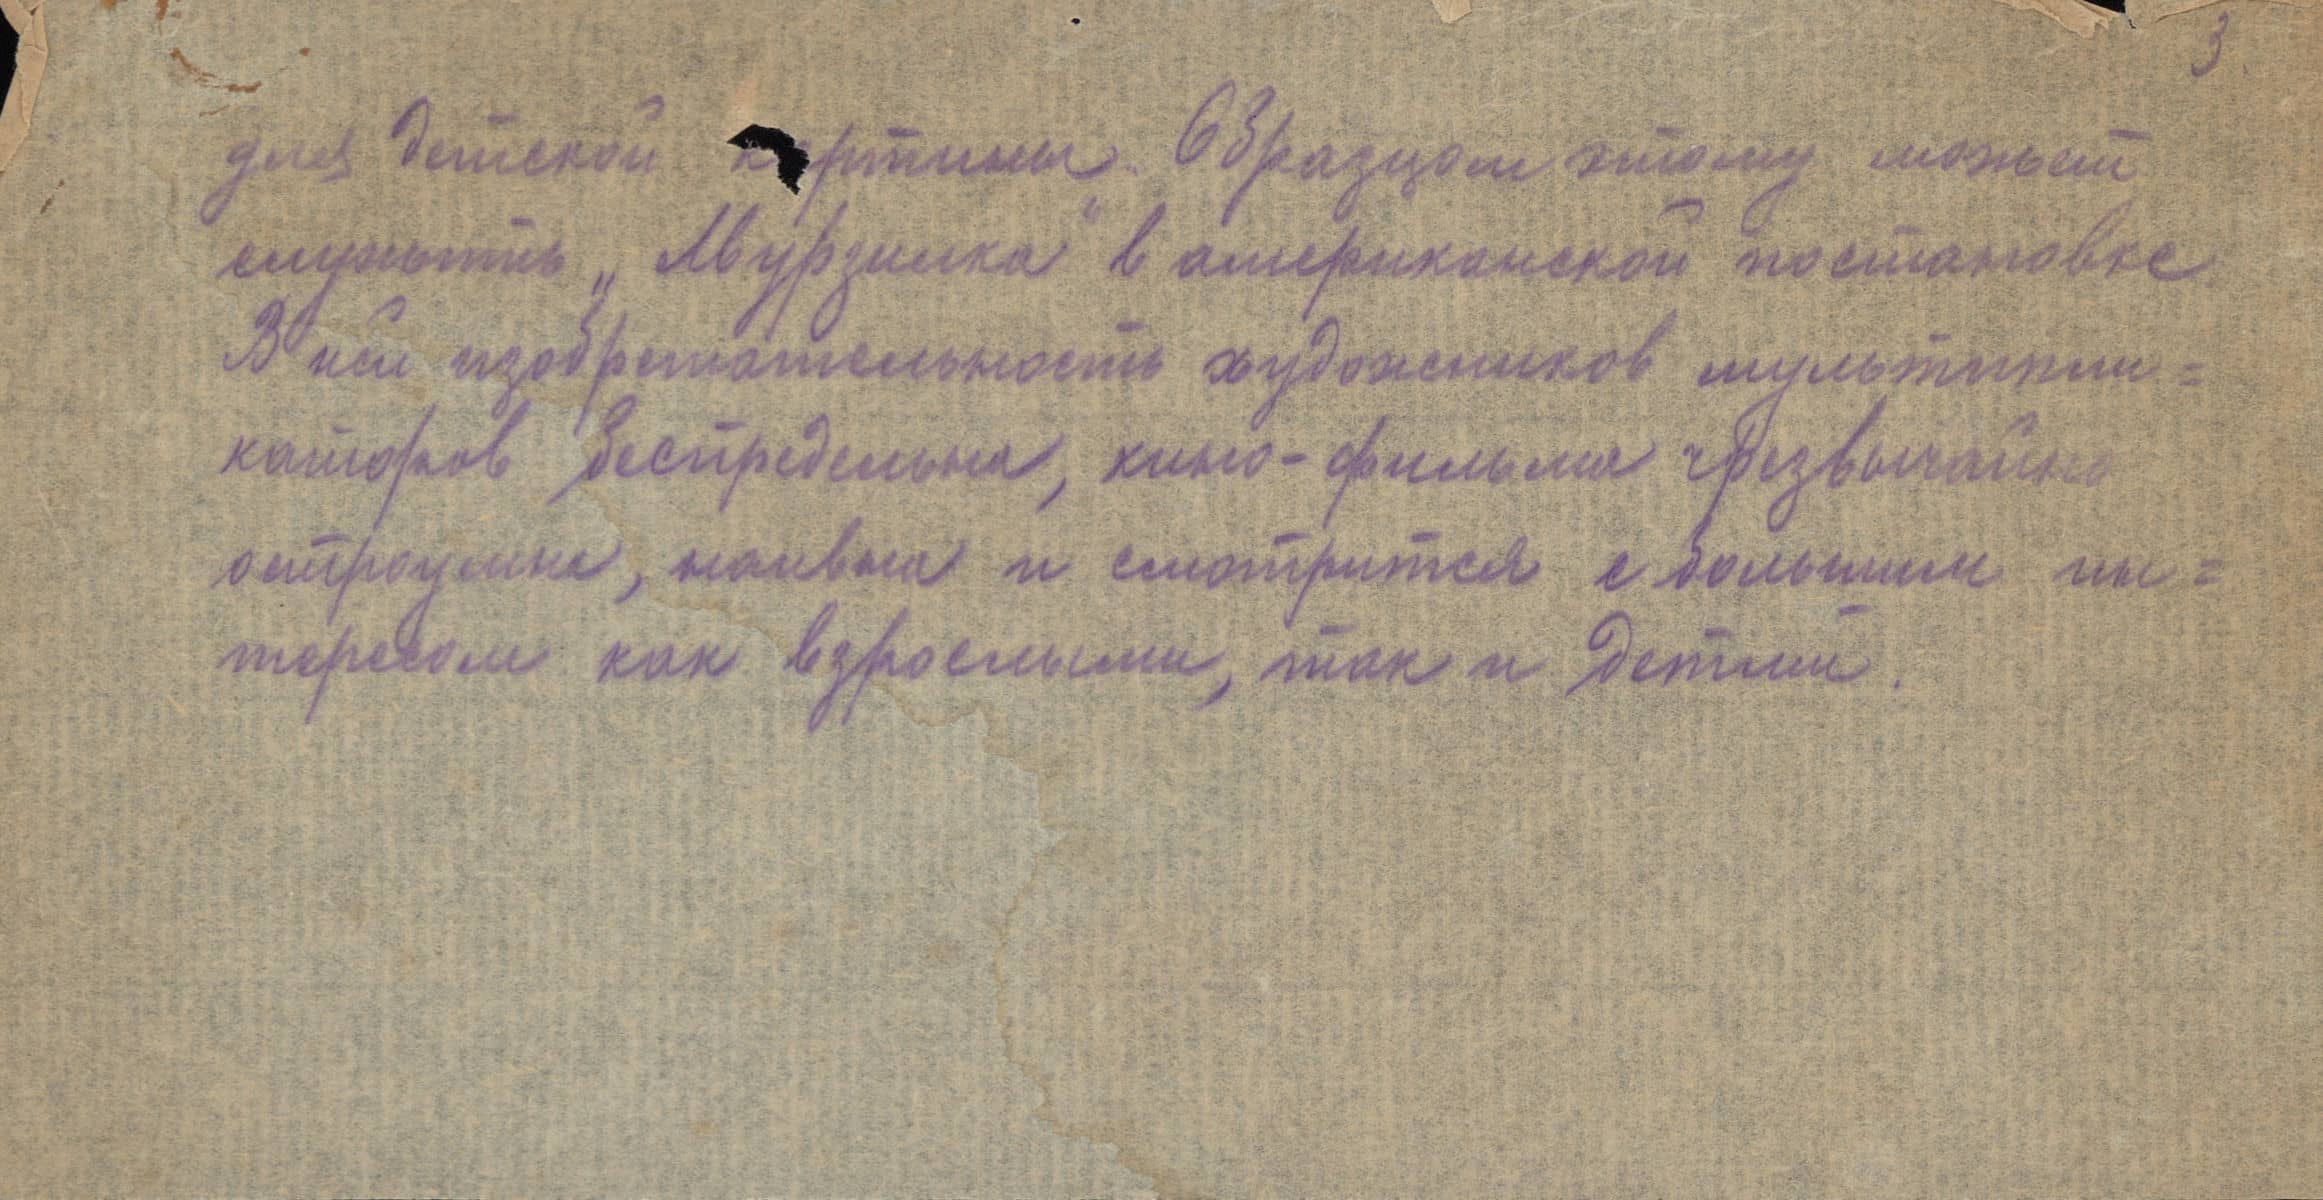 3.
для детской картины. Образцом этому может
служить „Мурзилка" в американской постановке.
В ней изобретательность художников мультипли=
каторов беспредельна, кино-фильма чрезвычайно
остроумна, наивна и смотрится с большим ин=
тересом как взрослыми, так и детьми.